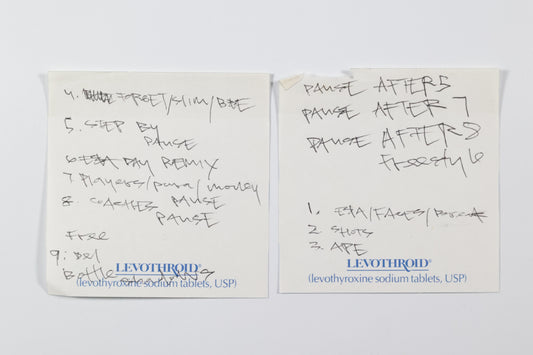 4. FORGET/SLIM/BEE
5. STEP BY
PAUSE
6 DAY REMIX
7 Players/para/money
8. COACHES PAUSE
PAUSE
Free
9. Del
Bottle
LEVOTHROID®
(levothyroxine sodium tablets, USP)
PAUSE AFTER 5
PAUSE AFTER 7
PAUSE AFTER 8
Freestyle
1. EPA/FACES/
2. SHOTS
3. APE
LEVOTHROID®
(levothyroxine sodium tablets, USP)